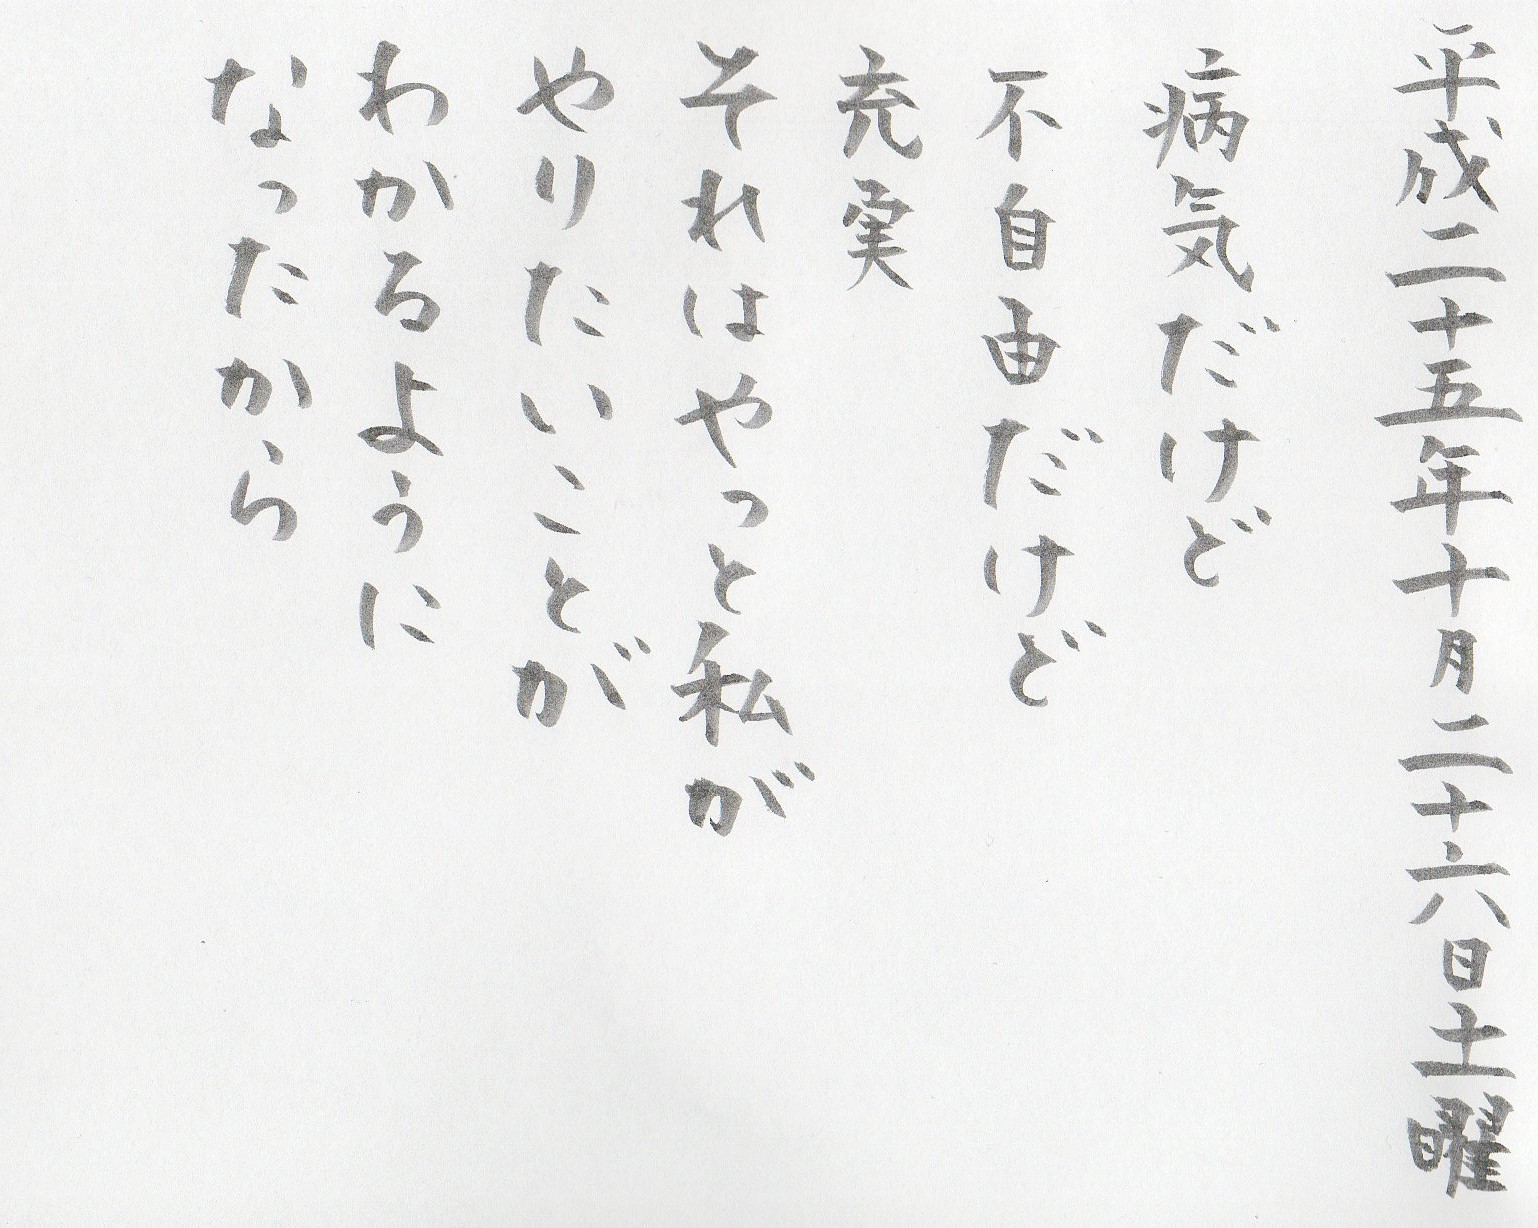 平成二十五年十月二十六日土曜
病気だけど
不自由だけど
充実
それはやっと私が
やりたいことが
わかるように
なったから